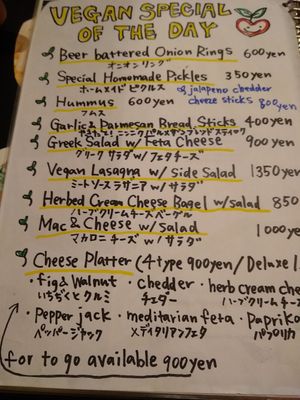 VEGAN SPECIAL
OF THE DAY
Beer battered Onion Rings 600yen
オニオンリング
Special Homemade Pickles 350yen
ホームメイドピクルス
jalapeno chedder
Hummus 600yen
cheeze sticks 800yen
フムス
Garlic & Parmesan Bread Sticks 400yen
Greek Salad w/ Feta Cheese 900yen
グリークサラダ w/ フェタチーズ
Vegan Lasagna w/ side Salad 1350yen
ミートソースラザニア w/ サラダ
Herbed Cream Cheese Bagel w/ salad 850
ハーブクリームチーズベーグル
Mac & Cheese w/ Salad 1000ye
マカロニチーズ w/ サラダ
Cheese Platter (4 type 900yen / Deluxe 1
・fig & Walnut ・chedder ・herb cream che
いちぢくとクルミ チェダー ハーブクリームチ
・Pepper jack ・meditarian feta ・Paprika
ペッパージャック メディタリアンフェタ パプリカ
for to go available 900yen